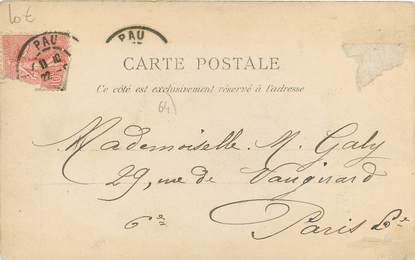 10€
PAU
PAU
CARTE POSTALE
Ce côté est exclusivement réservé à l'adresse
64)
Mademoiselle M. Galy
29, rue de Vaugirard
6e Paris